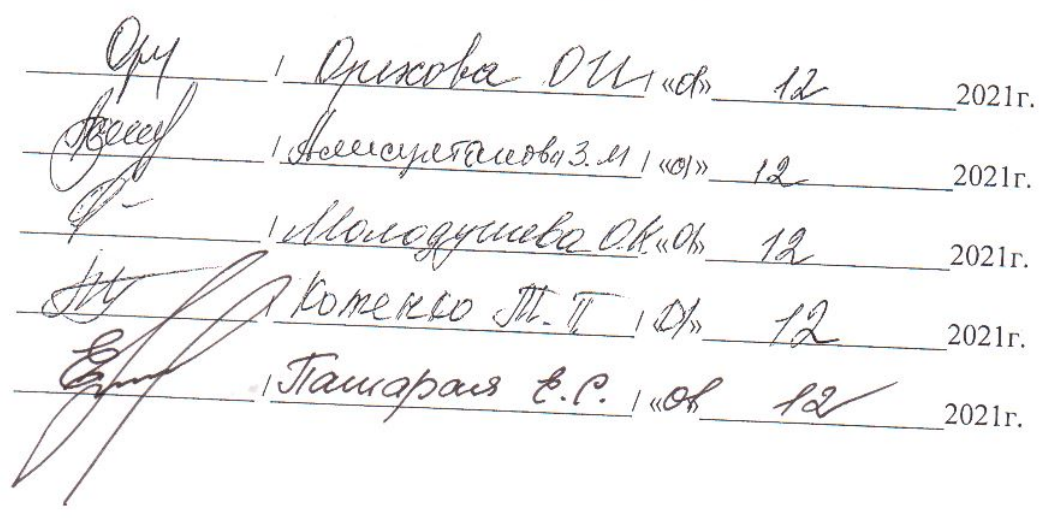 / Орехова О И / «01» 12 2021г.
/ Алисултанова З.М / «01» 12 2021г.
/ Молодушева О.К. «01» 12 2021г.
/ Коженко Т.П. / «01» 12 2021г.
/ Пашарая Е.С. / «01 12 2021г.